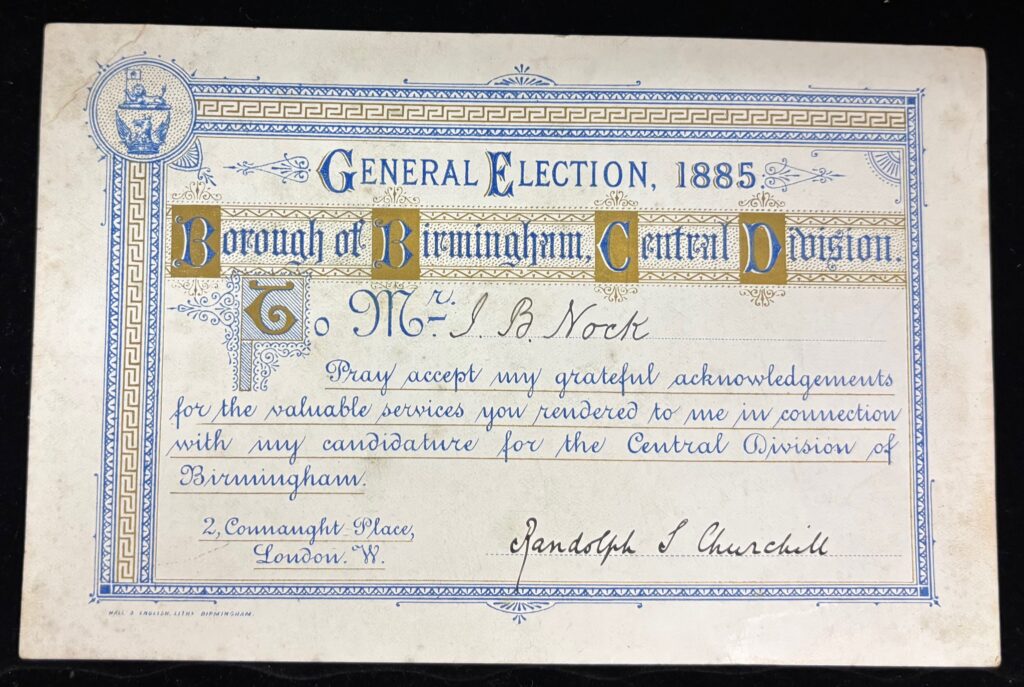 GENERAL ELECTION, 1885.
Borough of Birmingham, Central Division.
To Mr. J. B. Nock
Pray accept my grateful acknowledgements
for the valuable services you rendered to me in connection
with my candidature for the Central Division of
Birmingham.
2, Connaught Place,
London. W.
Randolph S Churchill
HALL & ENGLISH, LITHS BIRMINGHAM.